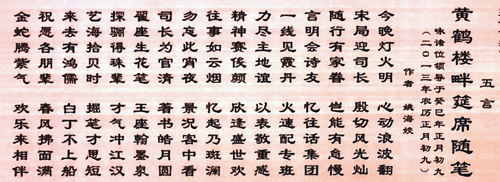 黄鹤楼畔筵席随笔
五言
咏诸位领导于癸巳年正月初九
(二〇一三年农历正月初九)
作者 姚海姣
今晚灯火明 心动浪波翻
宋局迎司长 殷切风光灿
随行有家眷 岂能有怠慢
言明会诗友 忆往话集团
一线见霞丹 火速配专班
力尽主地谊 以表敬重感
精神赛侯颜 欣逢盛世欢
往事如云烟 忆起乃斑斓
勿忘此宵夜 中看
司长为官清 著书皓月圆
翟座生花笔 王座翰墨泉
探骊得珠辈 才气冲江汉
艺海拾贝时 掘笔才思短
来去有鸿儒 白丁不上船
祝愿各朋辈 春风拂面满
金蛇腾紫气 欢乐来相伴